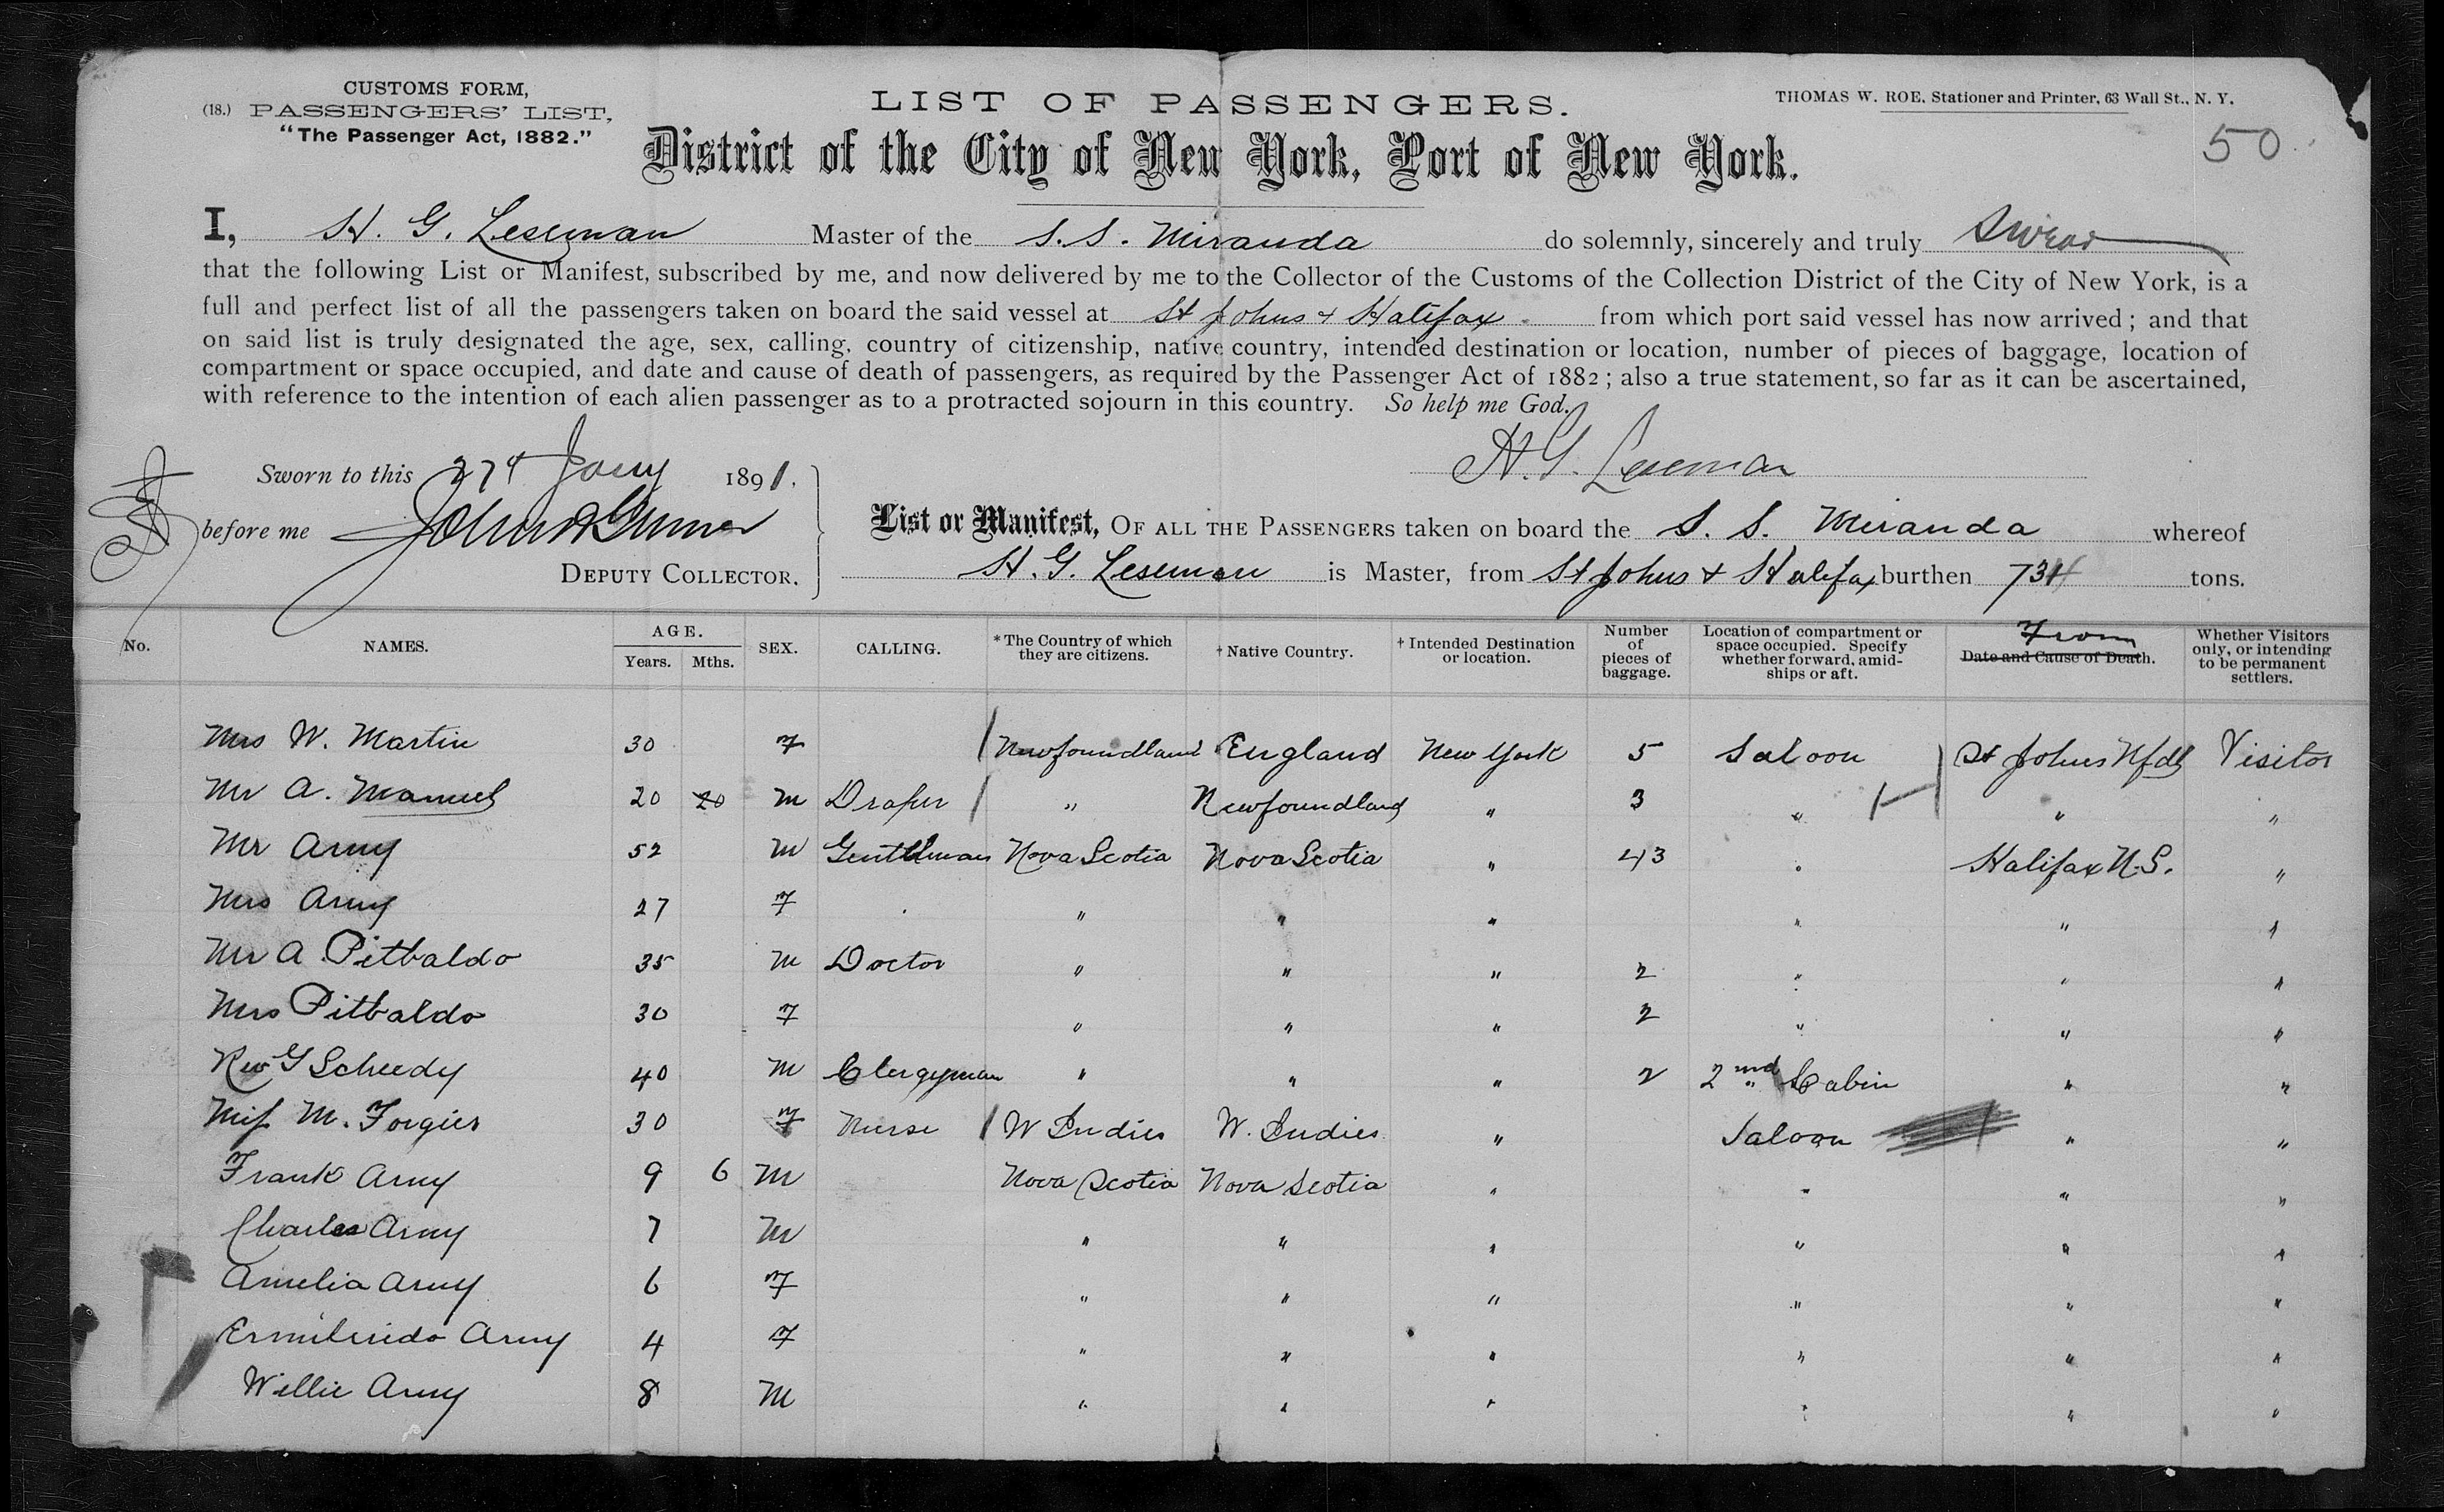 CUSTOMS FORM,
(18.) PASSENGERS' LIST,
"The Passenger Act, 1882."
LIST OF PASSENGERS.
THOMAS W. ROE, Stationer and Printer, 63 Wall St., N. Y.
50
District of the City of New York, Port of New York.
I, H. G. Leseman Master of the S.S. Miranda do solemnly, sincerely and truly swear
that the following List or Manifest, subscribed by me, and now delivered by me to the Collector of the Customs of the Collection District of the City of New York, is a
full and perfect list of all the passengers taken on board the said vessel at St Johns & Halifax from which port said vessel has now arrived; and that
on said list is truly designated the age, sex, calling, country of citizenship, native country, intended destination or location, number of pieces of baggage, location of
compartment or space occupied, and date and cause of death of passengers, as required by the Passenger Act of 1882; also a true statement, so far as it can be ascertained,
with reference to the intention of each alien passenger as to a protracted sojourn in this country. So help me God.
H. G. Leseman
Sworn to this 27 Jany 1891.
before me
DEPUTY COLLECTOR.
List or Manifest, OF ALL THE PASSENGERS taken on board the S. S. Miranda whereof
H. G. Leseman is Master, from St Johns & Halifax burthen 734 tons.
No. NAMES. AGE. Years. Mths. SEX. CALLING. *The Country of which they are citizens. †Native Country. †Intended Destination or location. Number of pieces of baggage. Location of compartment or space occupied. Specify whether forward, amidships or aft. From Date and Cause of Death. Whether Visitors only, or intending to be permanent settlers.
Mrs W. Martin 30 F Newfoundland England New York 5 Saloon St Johns Nfld Visitor
Mr A. Manuel 20 20 M Draper " Newfoundland " 3 " " "
Mr Army 52 M Gentleman Nova Scotia Nova Scotia " 43 " Halifax N.S. "
Mrs Army 27 F " " " " " "
Mr A Pitbaldo 35 M Doctor " " " 2 " " "
Mrs Pitbaldo 30 F " " " 2 " " "
Rev G Scheedy 40 M Clergyman " " " 2 2nd Cabin " "
Miss M. Forgies 30 F Nurse W Indies W. Indies " Saloon " "
Frank Army 9 6 M Nova Scotia Nova Scotia " " " "
Charles Army 7 M " " " " " "
Amelia Army 6 F " " " " " "
Army 4 F " " " " " "
Willie Army 8 M " " " " " "